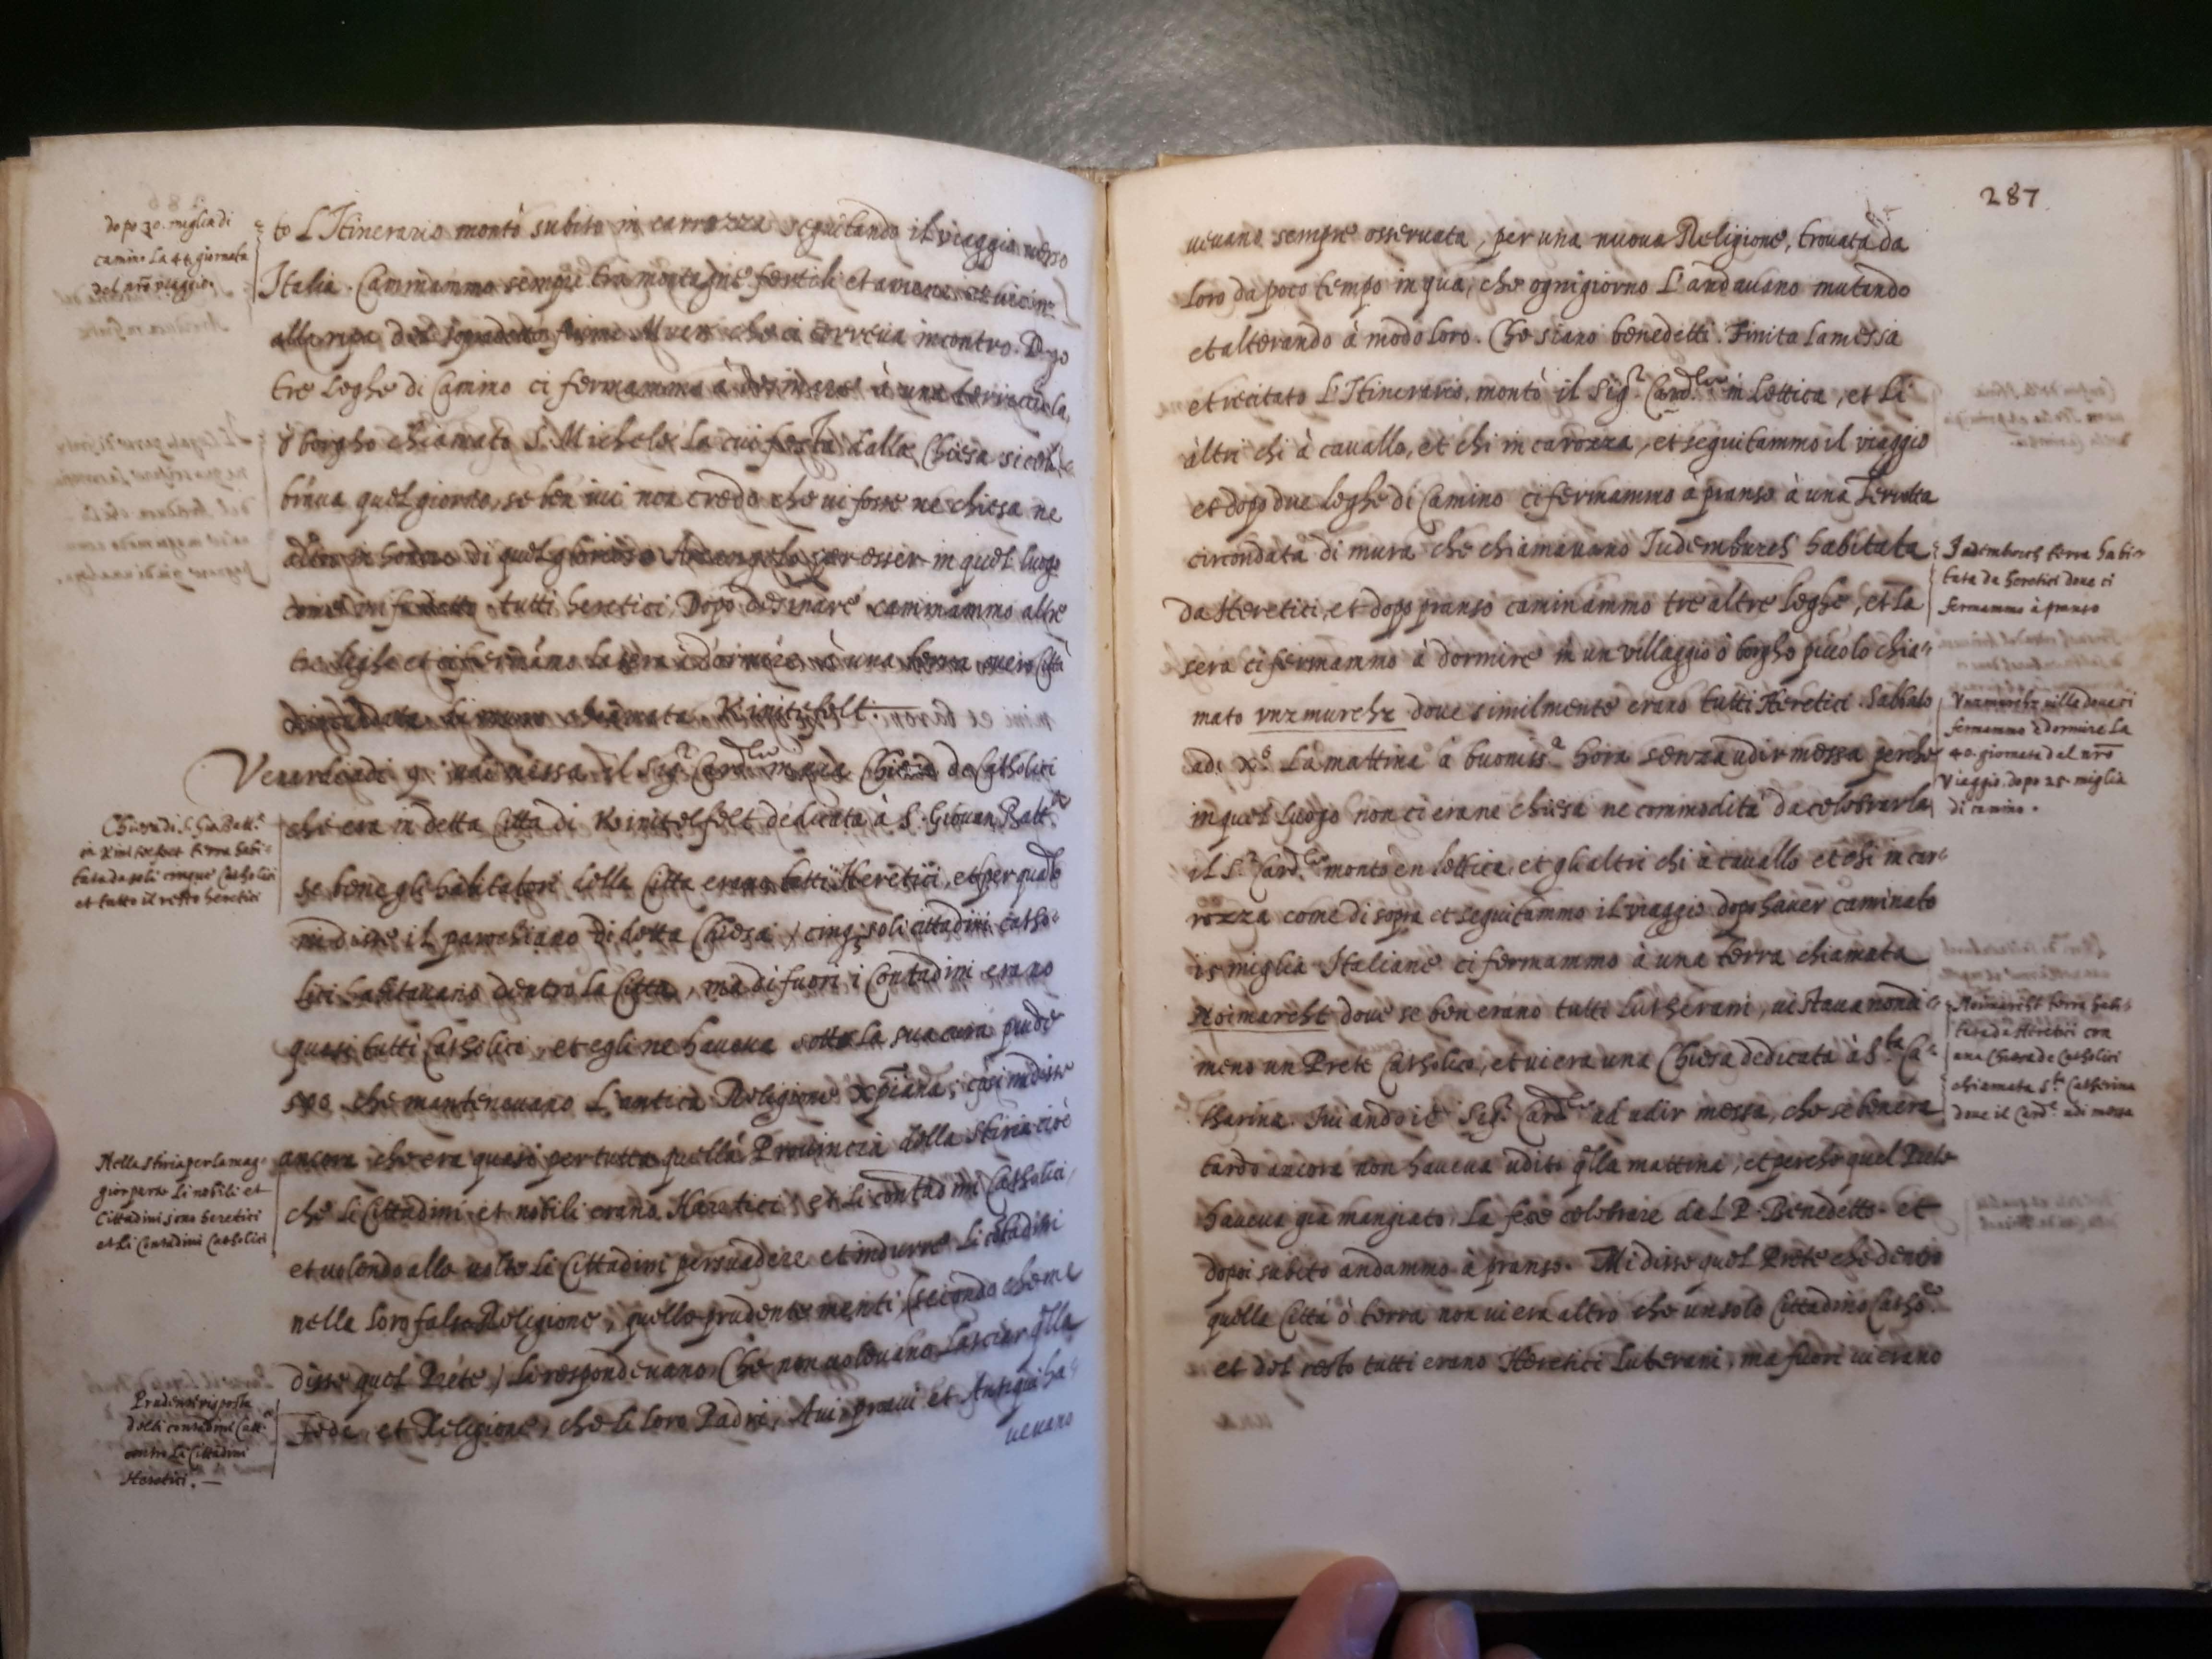 dopo 30. miglia di
camino La 44. giornata
del nr̃o viaggio.
to L'Itinerario montò subito in carrozza seguitando il viaggio verso
Italia. Camminammo sempre tra montagne fertili et amene et vicin
alla ripa del sopradetto fiume Muer che ci correua incontro. Dopo
tre leghe di Camino ci fermammo à desinare à una terricciuola,
ò borgho chiamato S. Michele la cui festa dalla Chiesa si cele
braua quel giorno, se ben iui non credo che ui fosse ne chiesa ne
altro in honore di quel glorioso Arcangelo per esser in quel luogo
tutti heretici. Dopo desinare camminammo altre
tre leghe et ci fermãmo la sera à dormire à una terra ouero Città
circondata di mura chiamata Kinitelfelt.
Venerdi adi 9. udi messa il Sig.r Card.le in una Chiesa de Catholici
che era in detta Città di Kinitelfelt dedicata à S. Giouan Batt.a
se bene gli habitatori della Città erano tutti Heretici, et per quãto
mi disse il parochiano di detta Chiesa, cinq; soli cittadini catho-
lici habitauano dentro la Città, ma di fuori i Contadini erano
quasi tutti Catholici, et egli ne haueua sotto la sua cura più de
500 che manteneuano L'antica Religione xp̃iana, cosi mi disse
ancora che era quasi per tutta quella Prouincia della Stiria cioè
che li Cittadini et nobili erano Heretici, et li contadini Catholici,
et uolendo alle uolte li Cittadini persuadere et indurre li cõtadini
nella loro falsa Religione, quelli prudentemente (secondo che me
disse quel Prete) li respondeuano, Che non uoleuano lasciar q̃lla
Fede, et Religione, che li loro Padri, Aui, proaui et Antiqui ha-
ueuano
Chiesa di S. Gio Batt.a
in Kinitelfelt terra habi-
tata da soli cinque Catholici
et tutto il resto heretici
Nella Stiria per la mag-
gior parte li nobili et
Cittadini sono heretici
et li Contadini Catholici
Prudente risposta
delli contadini Catt.ci
contro li Cittadini
Heretici. —
287
ueuano sempre osseruata, per una nuoua Religione, trouata da
loro da poco tempo in qua, che ogni giorno L'andauano mutando
et alterando à modo loro. Che siano benedetti. Finita la messa
et recitato L'Itinerario, montò il Sig.r Card.le in lettica, et li
altri chi à cauallo, et chi in carozza, et seguitammo il viaggio
et dopo due leghe di Camino ci fermammo à pranso à una Terretta
circondata di mura che chiamauano Judemburch habitata
da Heretici, et dopo pranso caminammo tre altre leghe, et la
sera ci fermammo à dormire in un villaggio ò borgho piccolo chia-
mato vnzmurchz doue similmente erano tutti Heretici. Sabbato
adi X.o La mattina à buoniss.a hora senza udir messa perche
in quel luogo non ci era ne chiesa ne commodità da celebrarla
il S.r Card.le montò en lettica, et gli altri chi à cauallo et chi in car-
rozza come di sopra et seguitammo il viaggio dopo hauer caminato
15 miglia Italiane ci fermammo à una terra chiamata
Noimarcht doue se ben erano tutti lutherani, ui staua nondi-
meno un Prete Catholico, et ui era una Chiesa dedicata à S.ta Ca-
tharina. Iui andò il Sig.r Card.le ad udir messa, che se ben era
tardo ancora non haueua udito q̃lla mattina, et perche quel Prete
haueua gia mangiato, la fece celebrare dal P. Benedetto et
dopoi subito andammo à pranso. Mi disse quel Prete che dentro
quella Città ò terra non ui era altro che un solo Cittadino Catho.co
et del resto tutti erano Heretici Luterani, ma fuori ui erano
Judemburch terra habi-
tata da heretici doue ci
fermammo à pranso
Vnzmurchz uilla doue ci
fermammo à dormire La
giornata del nr̃o
Viaggio, dopo 25. miglia
di camino.
Noimarcht terra habi-
tata da Heretici con
una Chiesa de Catholici
chiamata S.ta Catherina
doue il Card.le udi messa